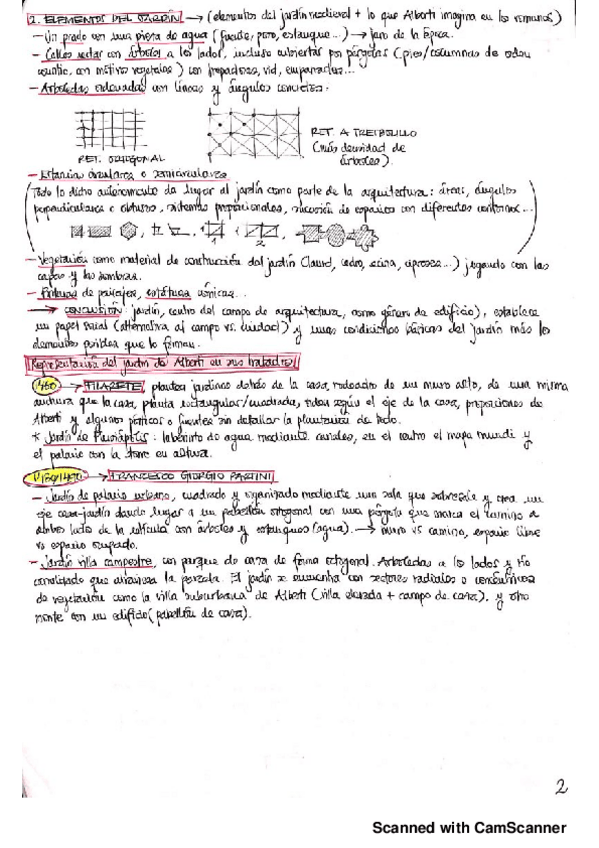 2. ELEMENTOS DEL JARDÍN → (elementos del jardín medieval + lo que Alberti imagina en los romanos)
- Un prado con una pieza de agua (fuente, pozo, estanque...) → de la época.
- Calles rectas con árboles a los lados, incluso cubiertas por pérgolas (pies/columnas de orden
con motivos vegetales) con trepadoras, vid, emparrados...
- Arboledas ordenadas con líneas y ángulos concretos.
RET. OROGONAL
RET. A TRESBOLILLO
(más densidad de
árboles).
- Estancias circulares o semicirculares
(Todo lo dicho da lugar al jardín como parte de la arquitectura: áreas, ángulos
perpendiculares o obtusos, sistemas proporcionales, sucesión de espacios con diferentes contornos...)
1 2
- Vegetación como material de construcción del jardín (laurel, cedro, encina, cipreses...) jugando con las
copas y las sombras.
- Pinturas de paisajes, estatuas cómicas...
→ CONCLUSIÓN: jardín, dentro del campo de arquitectura, como género de edificio), establece
un papel social (alternativa al campo vs. ciudad) y unas condiciones básicas del jardín más los
elementos posibles que lo forman.
Representación del jardín de Alberti en sus tratadistas
1460 → FILARETE, plantea jardines detrás de la casa, rodeados de un muro alto, de una misma
anchura que la casa, planta rectangular/cuadrada, según el eje de la casa, proporciones de
Alberti y algunos pórticos o fuentes sin detallar la plantación de todo.
* Jardín de : laberinto de agua mediante canales, en el centro el mapa mundi y
el palacio con la torre en altura.
→ FRANCESCO GIORGIO MARTINI
- Jardín de palacio urbano, cuadrado y organizado mediante una sala que sobresale y crea un
eje casa-jardín dando lugar a un pabellón octogonal con una pérgola que marca el camino a
ambos lados de la retícula con árboles y estanques (agua). → muro vs camino, espacio libre
vs espacio ocupado.
- Jardín villa campestre, con parque de caza de forma octogonal. Arboledas a los lados y río
canalizado que atraviesa la parcela. El jardín se encuentra con sectores radiales o concéntricos
de vegetación como la villa suburbana de Alberti (villa elevada + campo de caza), y otro
monte con un edificio (pabellón de caza).
2
Scanned with CamScanner